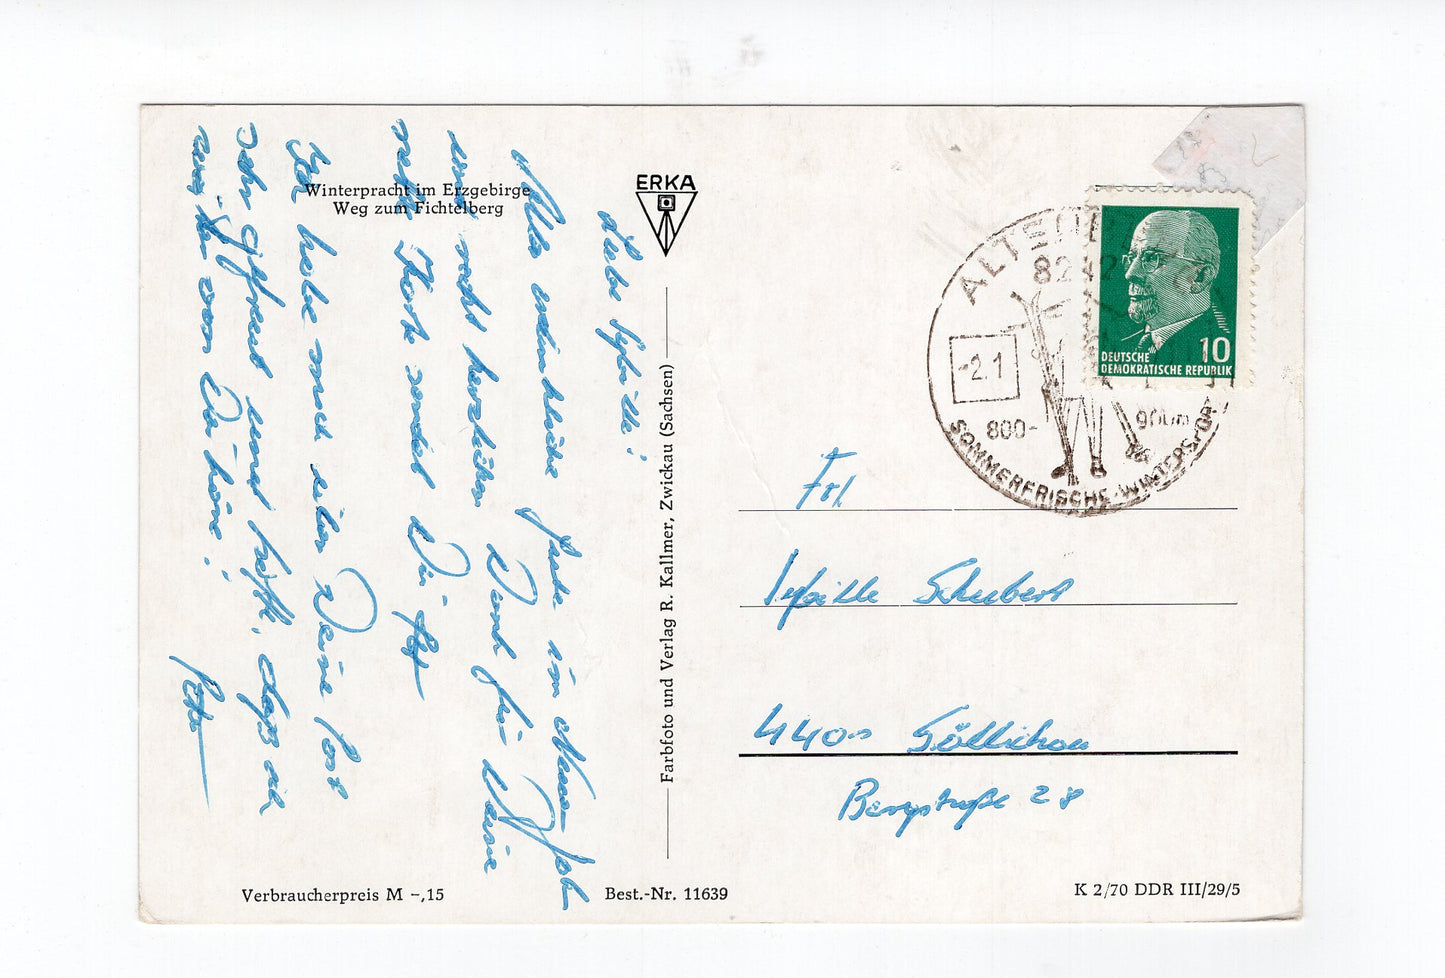 Winterpracht im Erzgebirge
Weg zum Fichtelberg
ERKA
Liebe Sybille!
Alles erdenkliche Gute im Neuen Jahr
und recht herzlichen Dank für Deine
nette Karte sendet Dir
Ich habe mich über Deine Post
sehr gefreut und hoffe, daß ich
von Dir höre!
Peter
Farbfoto und Verlag R. Kallmer, Zwickau (Sachsen)
8242
DEUTSCHE
DEMOKRATISCHE REPUBLIK
10
-2.1
800-
900m
SOMMERFRISCHE · WINTERSPORT
Frl
Sybille Schubert
4400
Bergstraße 28
Verbraucherpreis M -,15
Best.-Nr. 11639
K 2/70 DDR III/29/5